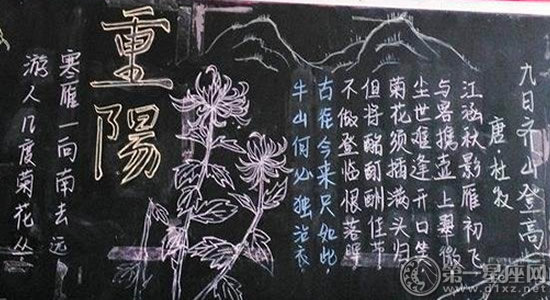 九日齐山登高
唐杜牧
江涵秋影雁初飞
与客携壶上翠微
尘世难逢开口笑
菊花须插满头归
但将酩酊酬佳节
不做登临恨落晖
古往今来只如此,
牛山何必独沾衣.
重陽
寒雁一向南去远
游人几度菊花丛
第一星座网
www.d1xz.net